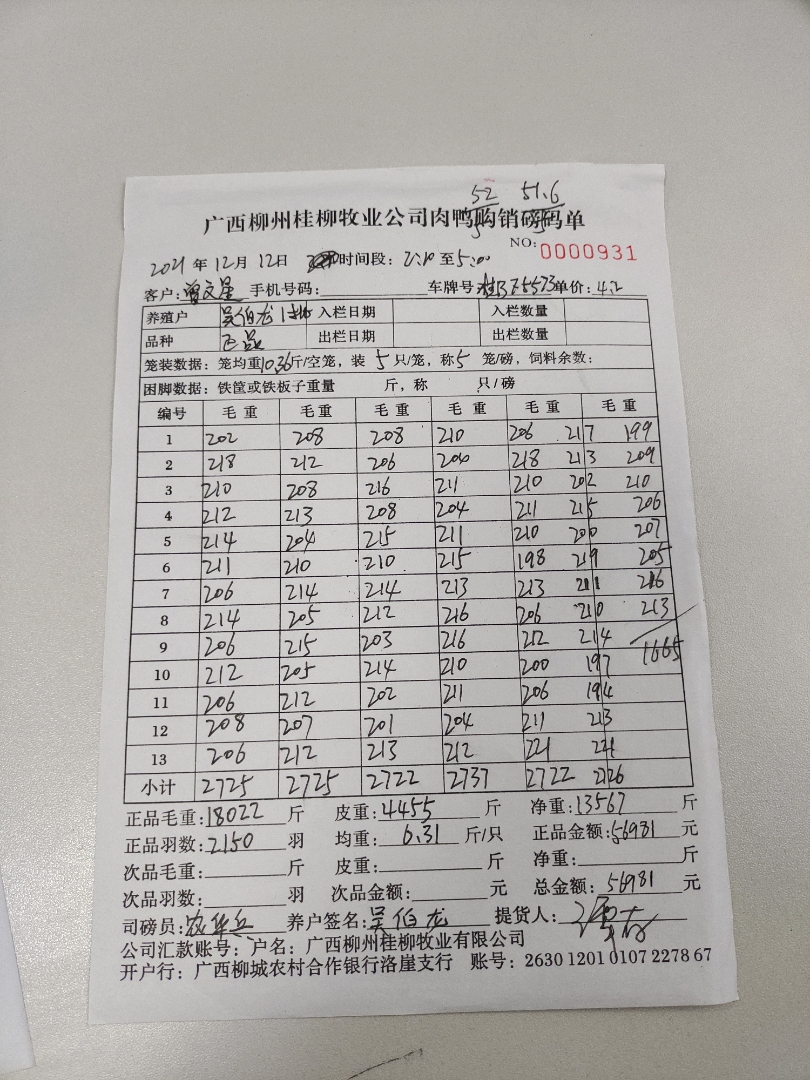 52 51.6
广西柳州桂柳牧业公司肉鸭购销磅码单
NO: 0000931
2021年12月12日 时间段: 2:10至5:00
客户: 曾文星 手机号码: 车牌号 单价: 4.2
养殖户 吴伯龙 入栏日期 入栏数量
品种 正品 出栏日期 出栏数量
笼装数据: 笼均重10.36斤/空笼, 装5只/笼, 称5笼/磅, 饲料余数:
困脚数据: 铁筐或铁板子重量 斤, 称 只/磅
编号 毛重 毛重 毛重 毛重 毛重 毛重
1 202 208 208 210 206 217 199
2 218 212 206 204 218 213 209
3 210 208 216 211 210 202 210
4 212 213 208 204 211 215 206
5 214 204 215 211 210 200 207
6 211 210 210 215 198 219 205
7 206 214 214 213 213 211 216
8 214 205 212 216 206 210 213
9 206 215 203 216 212 214
10 212 205 214 210 200 197 1665
11 206 212 202 211 206 194
12 208 207 201 204 211 213
13 206 212 213 212 221 221
小计 2725 2725 2722 2737 2722 2726
正品毛重: 18022斤 皮重: 4455斤 净重: 13567斤
正品羽数: 2150羽 均重: 6.31斤/只 正品金额: 56981元
次品毛重: 斤 皮重: 斤 净重: 斤
次品羽数: 羽 次品金额: 元 总金额: 56981元
司磅员: 农华兵 养户签名: 吴伯龙 提货人:
公司汇款账号: 户名: 广西柳州桂柳牧业有限公司
开户行: 广西柳城农村合作银行洛崖支行 账号: 2630 1201 0107 2278 67